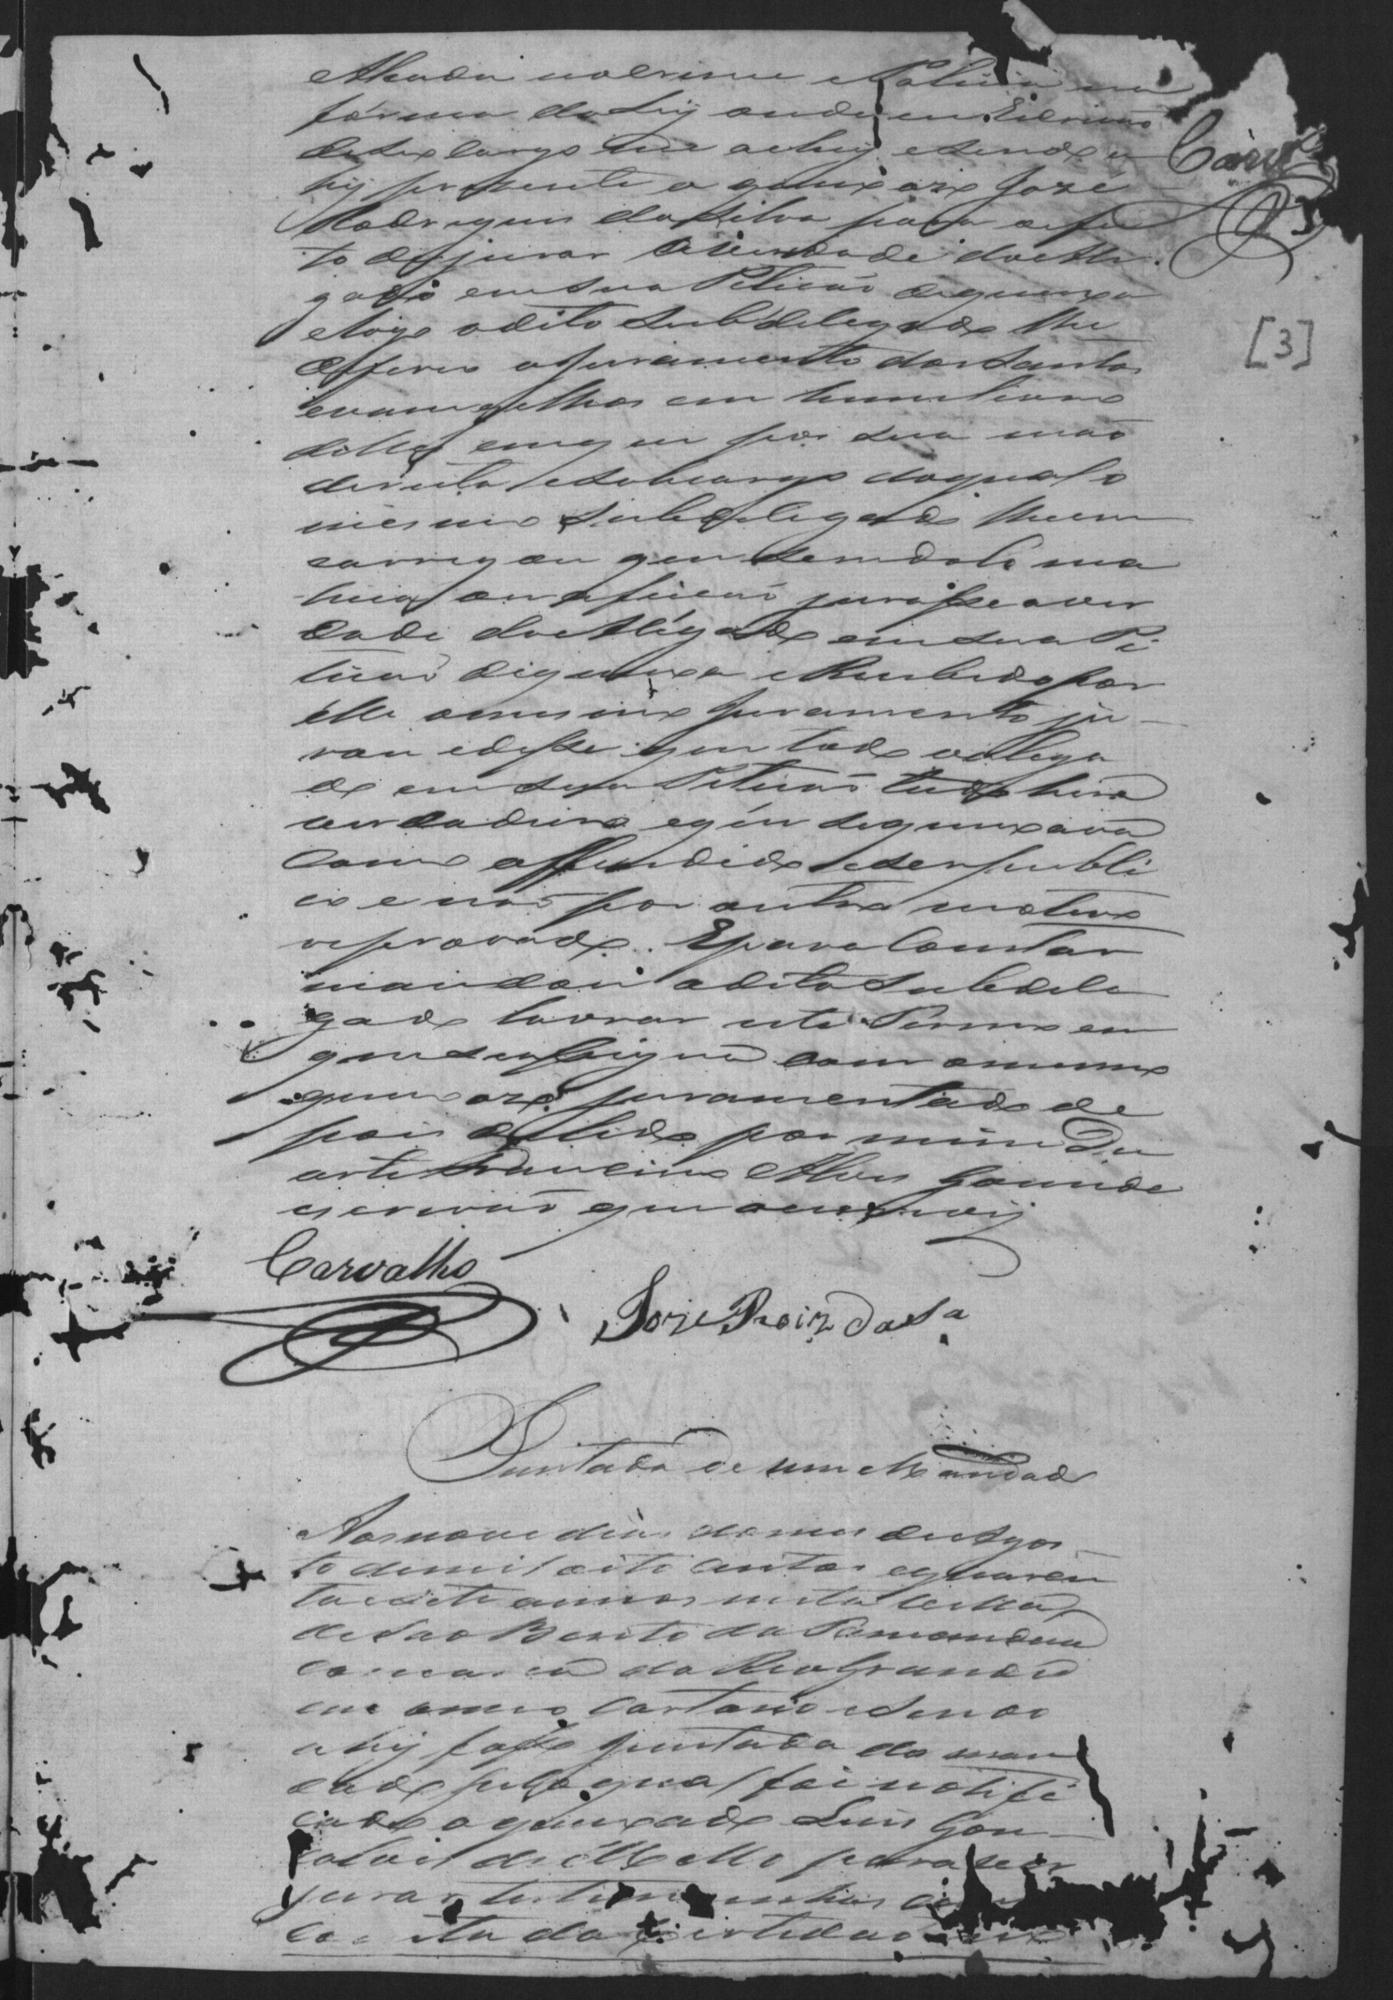 forma da Ley onde eu Escrivão
de seu cargo me achey e sendo a
hy prezente o queixozo Joze
Rodrigues da Silva para o effei
to de jurar a verdade do alle
gado em sua Petição de queixa
e logo o dito Subdelegado lhe
defferio o juramento dos Santos
evangelhos em hum livro
delles em que pos sua mão
direita e sob cargo do qual o
mesmo Subdelegado lhe en
carregou que sem dolo ma
licia ou afeição jurasse a ver
dade do allegado em sua Pe
tição de queixa e Recebido por
elle o mesmo juramento ju
rou e disse que todo o alega
do em sua Petição tudo hera
verdadeiro e que se queixava
como offendido e ser publi
co e não por outro motivo
reprovado. E para Constar
mandou o dito Subdele
gado lavrar este Termo em
que se assigna com o mesmo
queixozo juramentado de
pois de lido por mim Du
arte Francisco Alves
escrivão que o escrevy
Carvalho
Joze Roiz da Sa
[3]
Juntada de um Mandado
Aos nove dias do mes de Agos
to de mil oito centos e quaren
ta e sete annos nesta Villa
de Sao Bento da Tamandua
comarca do Rio Grande
em o meu Cartorio e sendo
ahy faço juntada do man
dado pelo qual foi notifi
cado o queixado Luis Gon
salves de Mello para ver
jurar testimunhas
da Certidão